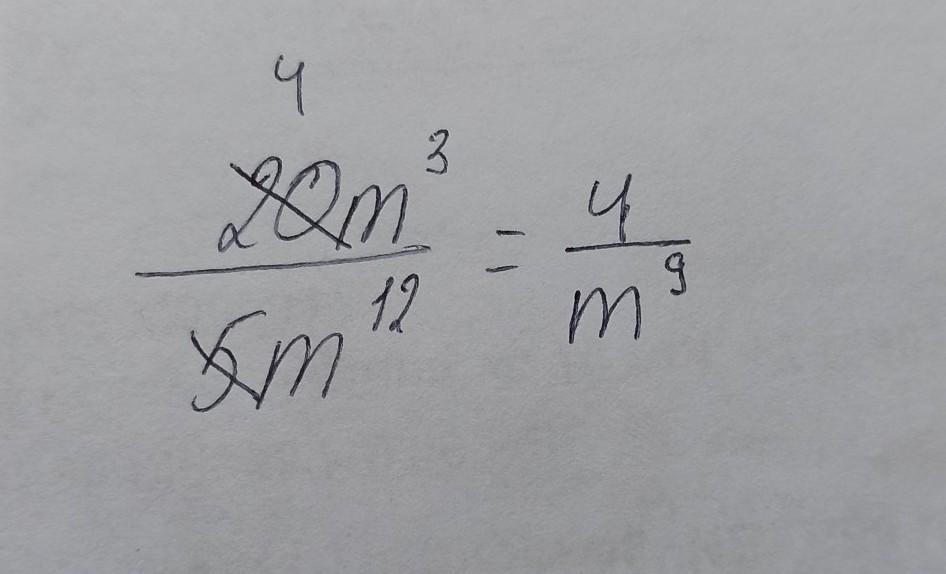 4
20m³
5m¹² = 4
m⁹